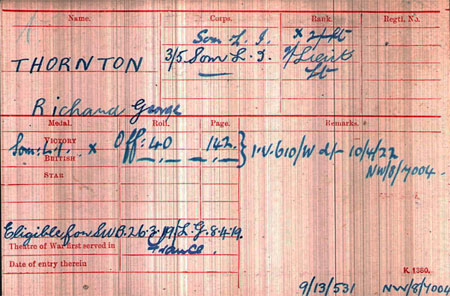 Name. Corps. Rank. Regtl. No.
Som L. I. x 2/Lt
THORNTON 3/5 Som L. I. T/Lieut
Lt
Richard George
Medal. Roll. Page. Remarks.
VICTORY
Som: L.I. x Off: 40 142. } I.V. 610/W d/- 10/4/22
BRITISH
NW/8/7004.
STAR
Eligible for SWB. 26.3.19/L.G. 8.4.19.
Theatre of War first served in France.
Date of entry therein
K. 1380.
9/13/531 NW/8/7004